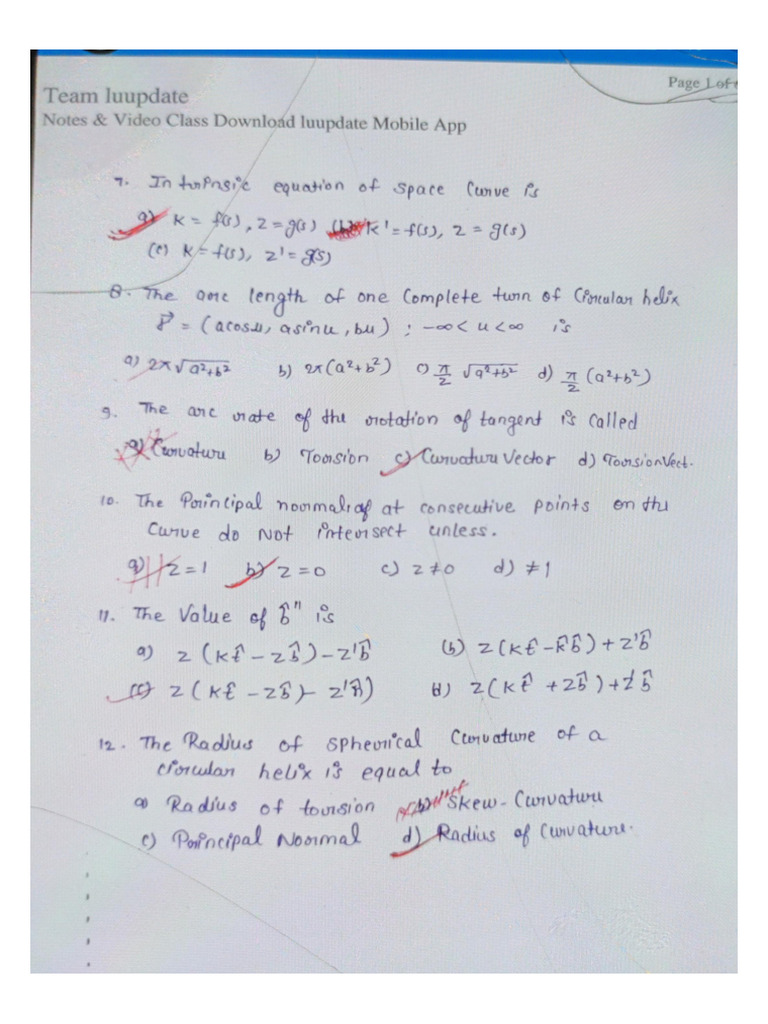 Team luupdate
Page 1 of
Notes & Video Class Download luupdate Mobile App
7. Intrinsic equation of space curve is
a) K = f(s), z = g(s) (b) K' = f(s), z = g(s)
(c) K = f(s), z' = g(s)
8. The arc length of one complete turn of circular helix
r⃗ = (acosu, asinu, bu) ; -∞ < u < ∞ is
a) 2π√(a²+b²) b) 2π(a²+b²) c) π/2 √(a²+b²) d) π/2 (a²+b²)
9. The arc rate of the rotation of tangent is called
a) Curvature b) Torsion c) Curvature Vector d) Torsion Vect.
10. The Principal normal at consecutive points on the
Curve do Not intersect unless.
a) z = 1 b) z = 0 c) z ≠ 0 d) ≠ 1
11. The Value of b̂" is
a) z (kt̂ - zb̂) - z'b̂ (b) z(kt̂ - kb̂) + z'b̂
(c) z (kt̂ - zb̂) - z'n̂) d) z(kt̂ + zb̂) + z'b̂
12. The Radius of spherical curvature of a
circular helix is equal to
a) Radius of torsion b) Skew-Curvature
c) Principal Normal d) Radius of Curvature.